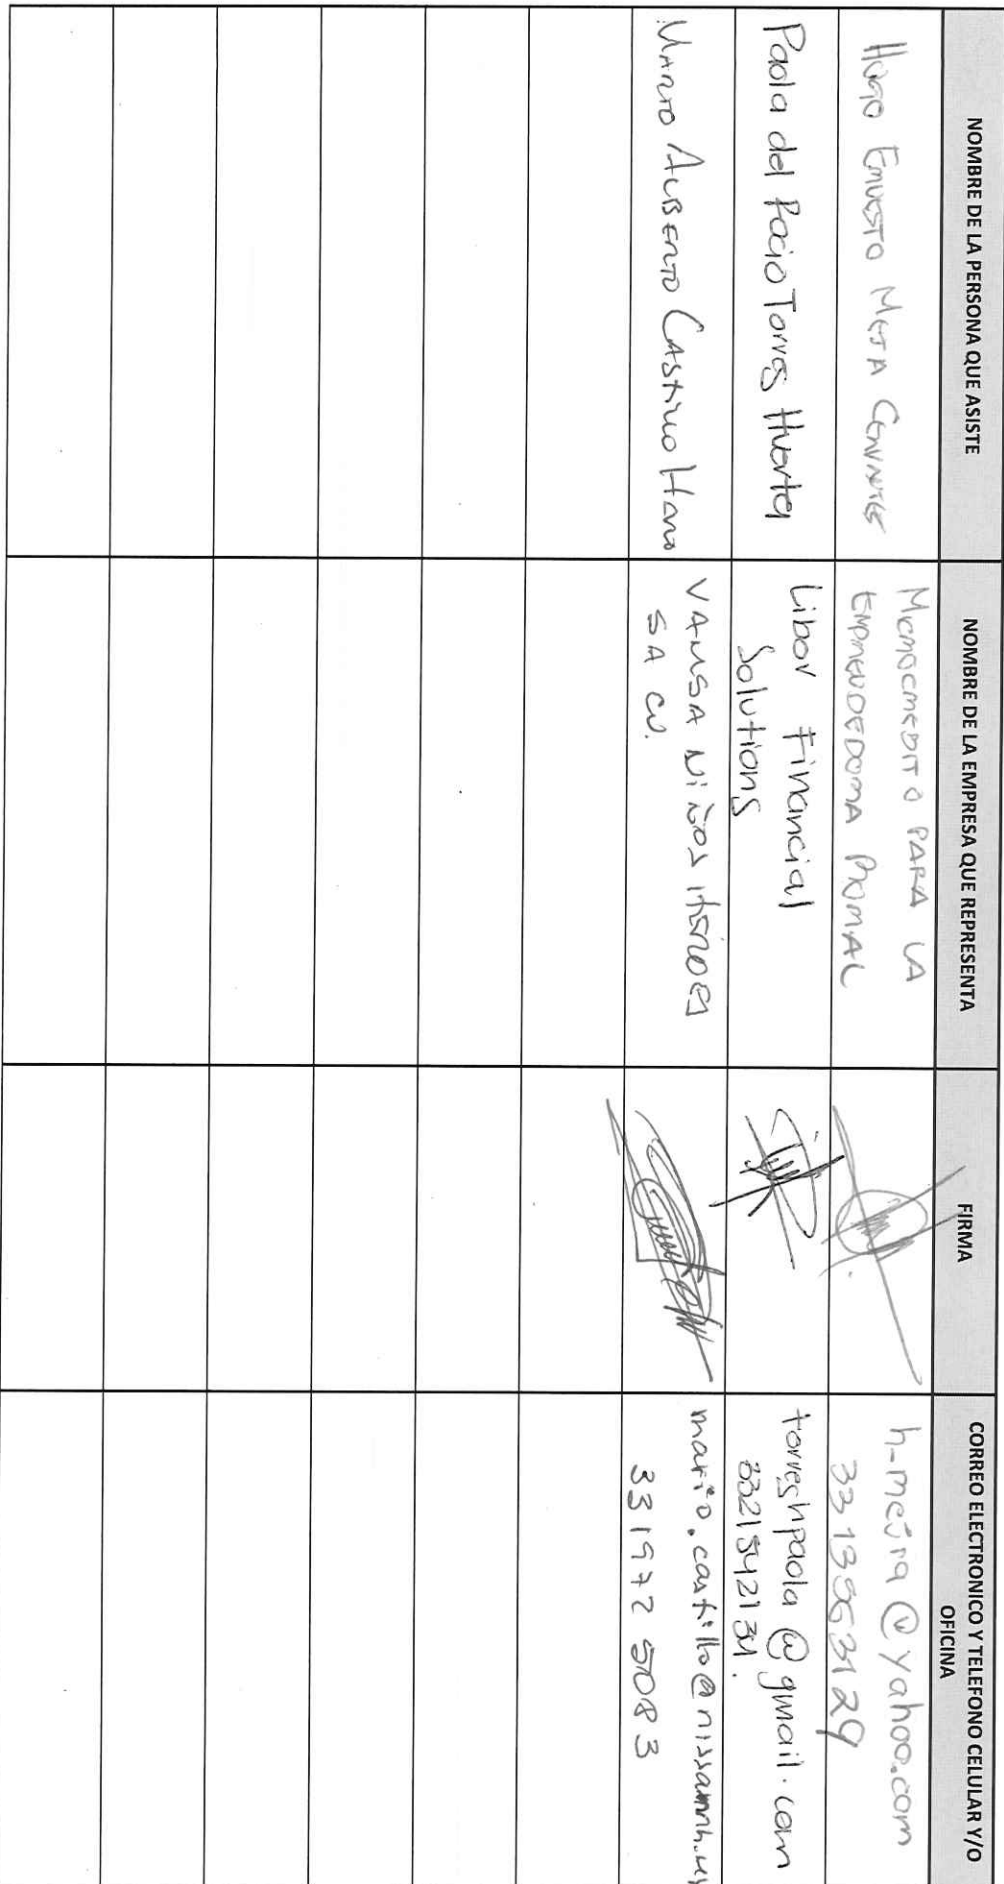 NOMBRE DE LA PERSONA QUE ASISTE
NOMBRE DE LA EMPRESA QUE REPRESENTA
FIRMA
CORREO ELECTRONICO Y TELEFONO CELULAR Y/O
OFICINA
Hugo Ernesto Mejia Cervantes
Microcredito PARA LA
Emprendedora
h-mejia@yahoo.com
Paola del Rocio Torres Huerta
Libor Financial
Solutions
torreshpaola@gmail.com
Mario Alberto Castillo Haro
VAMSA Niños Héroes
SA CV.
331972 5083